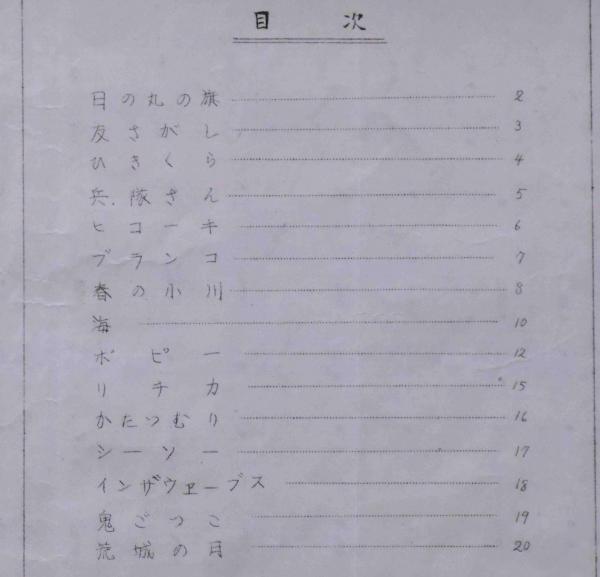 目次
日の丸の旗 2
友さがし 3
ひきくら 4
兵隊さん 5
ヒコーキ 6
ブランコ 7
春の小川 8
海 10
ボビー 12
リチカ 15
かたつむり 16
シーソー 17
インザウェーブス 18
鬼ごつこ 19
荒城の月 20